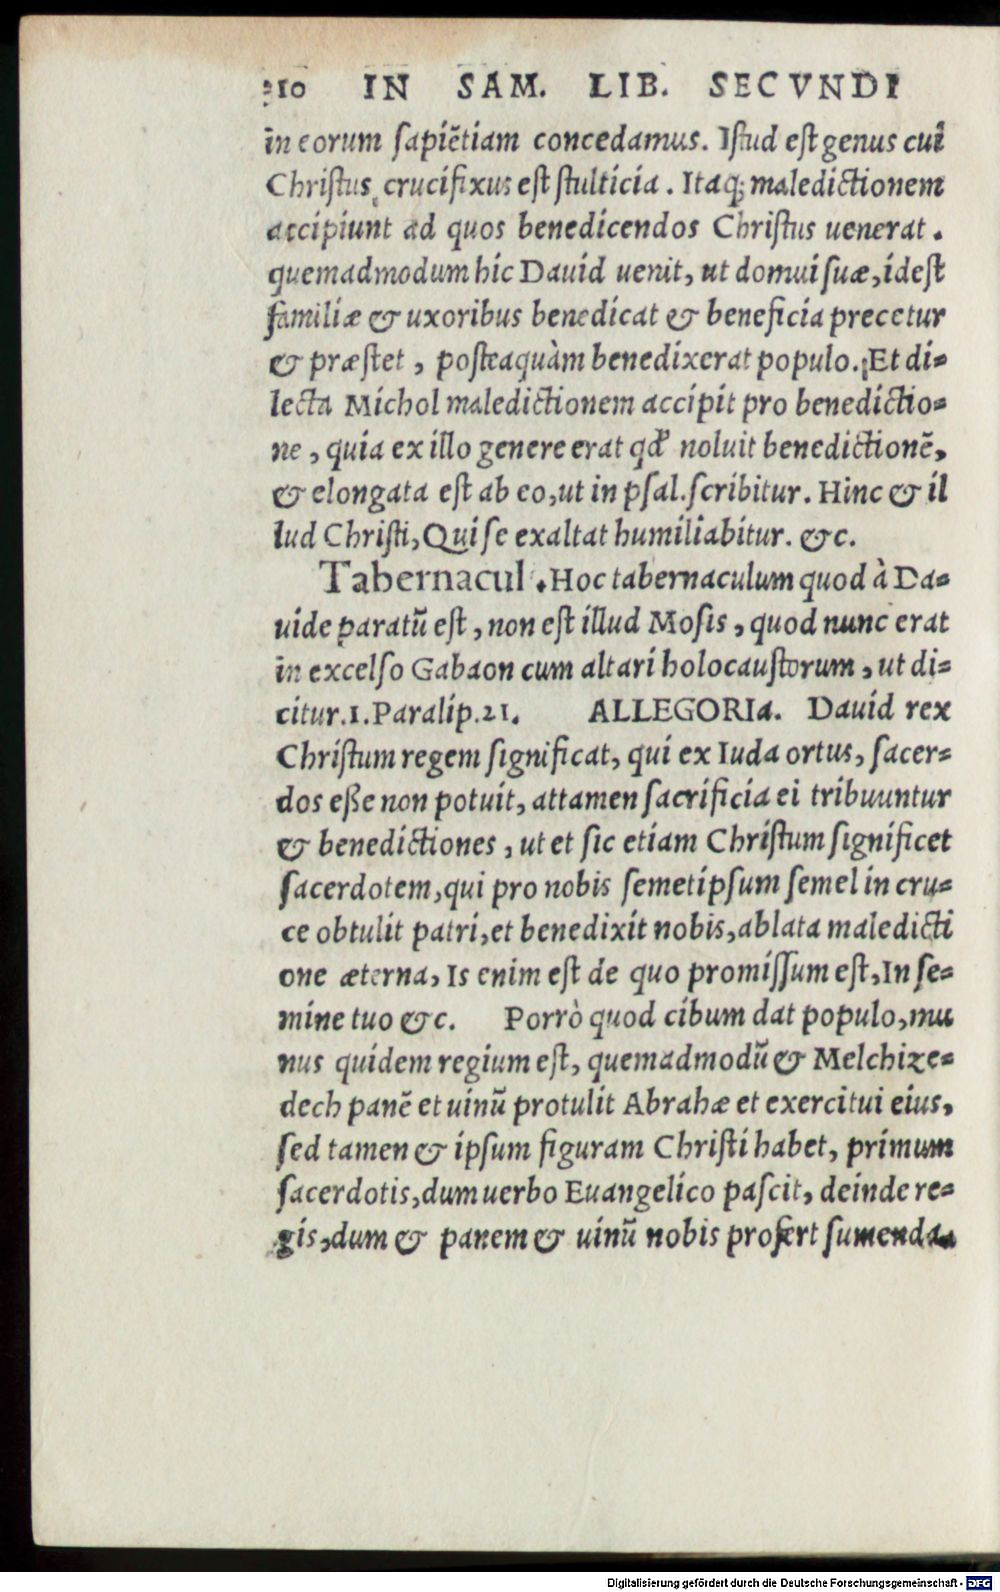 310 IN SAM. LIB. SECVNDI
in eorum sapiētiam concedamus. Istud est genus cui
Christus crucifixus est stulticia. Itaq; maledictionem
accipiunt ad quos benedicendos Christus uenerat.
quemadmodum hic Dauid uenit, ut domui suæ, idest
familiæ & uxoribus benedicat & beneficia precetur
& præstet, posteaquàm benedixerat populo. Et di-
lecta Michol maledictionem accipit pro benedictio-
ne, quia ex illo genere erat qđ noluit benedictionē,
& elongata est ab eo, ut in psal. scribitur. Hinc & il
lud Christi, Qui se exaltat humiliabitur. &c.
Tabernacul. Hoc tabernaculum quod à Da-
uide paratū est, non est illud Mosis, quod nunc erat
in excelso Gabaon cum altari holocaustorum, ut di-
citur. 1. Paralip. 21. ALLEGORIA. Dauid rex
Christum regem significat, qui ex Iuda ortus, sacer-
dos eße non potuit, attamen sacrificia ei tribuuntur
& benedictiones, ut et sic etiam Christum significet
sacerdotem, qui pro nobis semetipsum semel in cru-
ce obtulit patri, et benedixit nobis, ablata maledicti
one æterna, Is enim est de quo promissum est, In se-
mine tuo &c. Porrò quod cibum dat populo, mu
nus quidem regium est, quemadmodū & Melchize-
dech panē et uinū protulit Abrahæ et exercitui eius,
sed tamen & ipsum figuram Christi habet, primum
sacerdotis, dum uerbo Euangelico pascit, deinde re-
gis, dum & panem & uinū nobis profert sumenda.
Digitalisierung gefördert durch die Deutsche Forschungsgemeinschaft - DFG